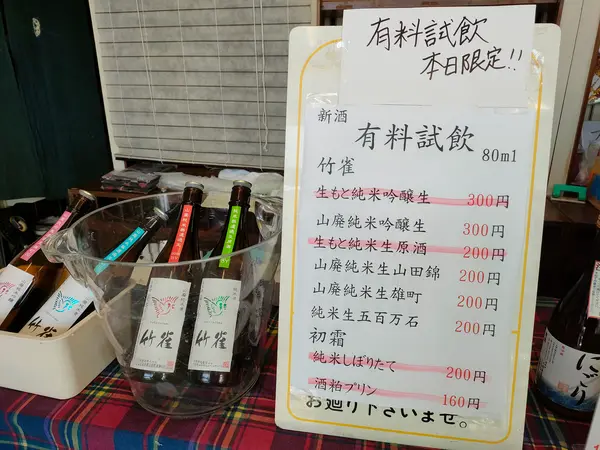 有料試飲
本日限定!!
新酒
有料試飲
80ml
竹雀
生もと純米吟醸生 300円
山廃純米吟醸生 300円
生もと純米生原酒 200円
山廃純米生山田錦 200円
山廃純米生雄町 200円
純米生五百万石 200円
初霜
純米しぼりたて 200円
酒粕プリン 160円
お廻り下さいませ。
竹雀
竹雀
にごり